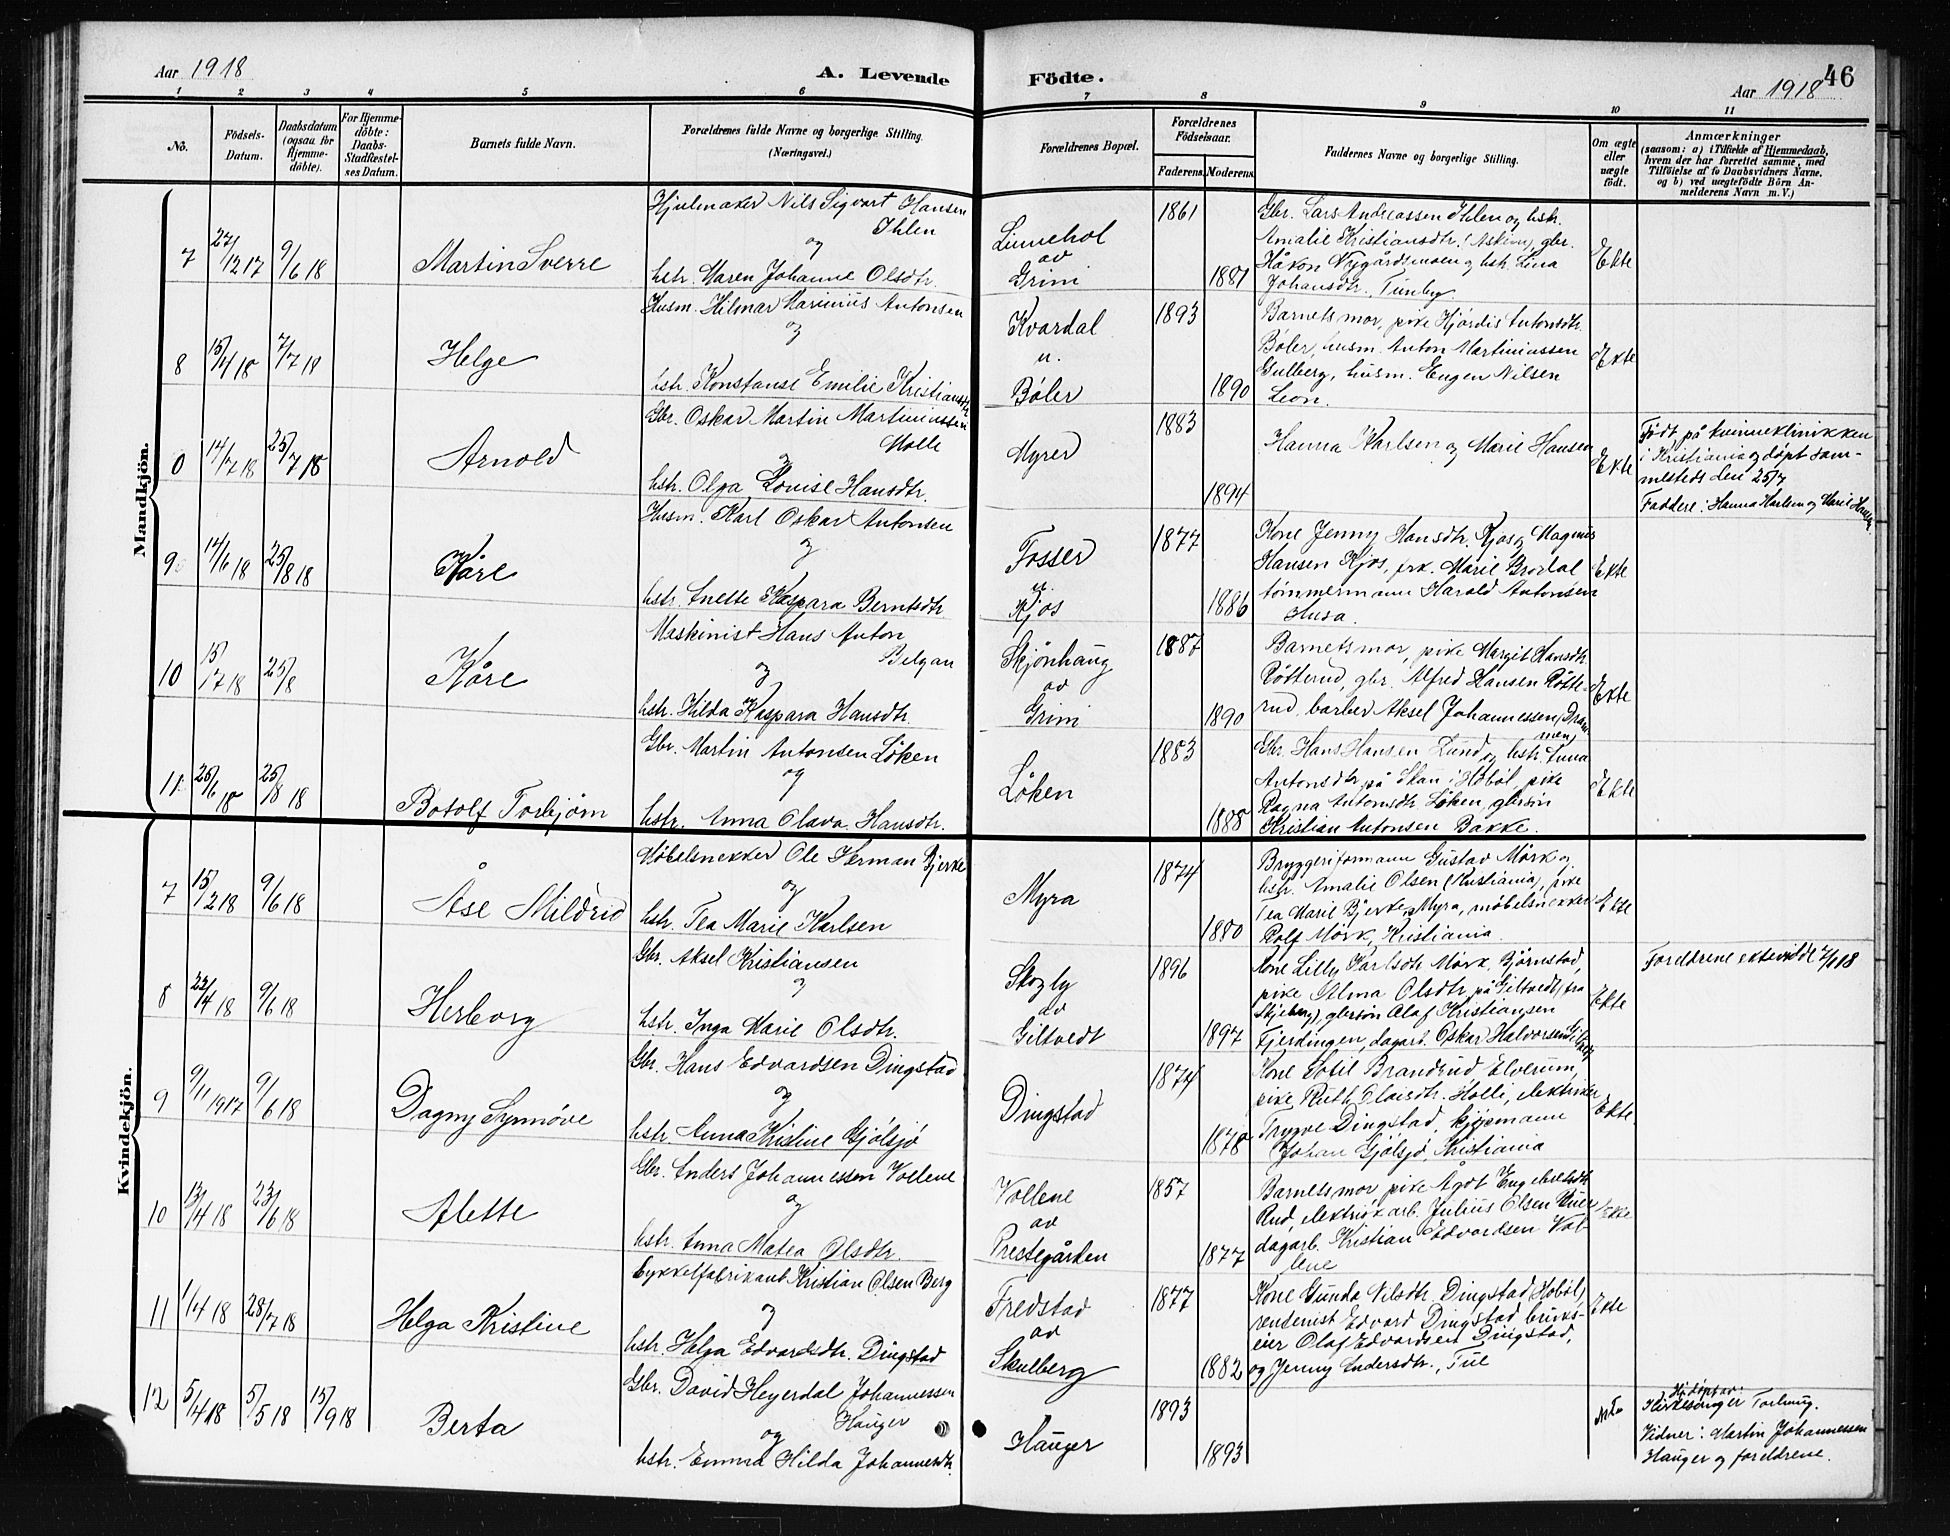 Aar 1918
A. Levende
Födte.
46
Aar 1918
1 2 3 4 5 6 7 8 9 10 11
No.
Födsels-
Datum.
Daabsdatum
(ogsaa for
Hjemme-
döbte).
For Hjemme-
döbte:
Daabs-
Stadfestel-
ses Datum.
Barnets fulde Navn.
Forældrenes fulde Navne og borgerlige Stilling.
(Næringsvei.)
Forældrenes Bopæl.
Forældrenes
Födselsaar.
Faderens. Moderens.
Faddernes Navne og borgerlige Stilling.
Om ægte
eller
uægte
födt.
Anmærkninger
(saasom: a) i Tilfælde af Hjemmedaab,
hvem der har forrettet samme, med
Tilföielse af to Daabsvidners Navne,
og b) ved uægtefödte Börn An-
melderens Navn m. V.)
Mandkjön.
7 27/12 17 9/6 18 Martin Sverre
Hjulmaker Nils Sigvart Hansen
Ihlen
og
hstr. Maren Johanne Olsdtr.
Linnehol
av
Grini
1861
1881
Gbr. Lars Andreassen Ihlen og hstr.
Amalie Kristiansdtr. (Askim), gbr.
Håkon Nygårdsmoen og hstr. Lina
Johansdtr. Tunby.
Ekte
8 15/4 18 7/7 18 Helge
Husm. Hilmar Marinius Antonsen
og
hstr. Konstanse Emilie Kristiansdtr.
Kvardal
u.
Bøler
1893
1890
Barnets mor, pike Hjørdis Antonsdtr.
Bøler, husm. Anton Martiniussen
Gulberg, husm. Eugen Nilsen
Leon.
Ekte
0 14/7 18 25/7 18 Arnold
Gbr. Oskar Martin Martiniussen
Molle
og
hstr. Olga Lovise Hansdtr.
Myrer
1883
1894
Hanna Karlsen og Marie Hansen
Ekte
Født på kvinneklinikken
i Kristiania og døpt sam-
mesteds den 25/7
Faddere: Hanna Karlsen og Marie Hansen
9 14/6 18 25/8 18 Kåre
Husm. Karl Oskar Antonsen
og
hstr. Anette Kaspara Berntsdtr.
Fosser
u.
Kjos
1877
1886
Kone Jenny Hansdtr. Kjos og Magnus
Hansen Kjos, frk. Marie Brodal
tømmermann Harald Antonsen
Husa.
Ekte
10 15/7 18 25/8 Kåre
Maskinist Hans Anton
Belgan
og
hstr. Hilda Kaspara Hansdtr.
Skjønhaug
av
Grini
1887
1890
Barnets mor, pike Margit Hansdtr.
Røtterud, gbr. Alfred Hansen Røtte-
rud, barber Aksel Johannessen, Dram-
men,
Ekte
11 26/6 18 25/8 18 Botolf Torbjørn
Gbr. Martin Antonsen Løken
og
hstr. Anna Olava Hansdtr.
Løken
1883
1888
Gbr. Hans Hansen Lund og hstr. Anna
Antonsdtr. på Skan i Hobøl, pike
Ragna Antonsdtr. Løken, gbrsøn
Kristian Antonsen Bakke.
Ekte
Kvindekjön.
7 15/2 18 9/6 18 Åse Mildrid
Møbelsnekker Ole Herman Bjerke
og
hstr. Tea Marie Karlsen
Myra
1874
1880
Bryggeriformann Gustav Mørk og
hstr. Amalie Olsen (Kristiania), pike
Tea Marie Bjerke, Myra, møbelsnekker
Rolf Mørk, Kristiania.
Ekte
8 22/4 18 9/6 18 Herborg
Gbr. Aksel Kristiansen
og
hstr. Inga Marie Olsdtr.
Skogly
av
Giltvedt
1896
1897
Kone Lilly Karlsdtr. Mørk, Bjørnstad,
pike Alma Olsdtr. på Giltvedt, (fra
Skjeberg), gbrsøn Olaf Kristiansen
Fjerdingen, dagarb. Oskar Halvorsen
Ekte
Foreldrene ekteviddde 2/1 18
9 9/11 1917 9/6 18 Dagny Synnøve
Gbr. Hans Edvardsen Dingstad
og
hstr. Anna Kristine Gjølsjø
Dingstad
1874
1878
Kone Sofie Brandrud Elverum,
pike Ruth Olaisdtr. Holli, elektriker
Trygve Dingstad, kjøpmann
Johan Gjølsjø, Kristiania
Ekte
10 13/4 18 23/6 18 Alette
Gbr. Anders Johannessen Vollene
og
hstr. Anna Matea Olsdtr.
Vollene
av
Prestegården
1857
1877
Barnets mor, pike Ågot Engebretsdtr.
Rud, elektrisk arb. Julius Olsen
dagarb. Kristian Edvardsen Vol-
lene
Ekte
11 1/4 18 28/7 18 Helga Kristine
Cykkelfabrikant Kristian Olsen Berg
og
hstr. Helga Edvardsdtr. Dingstad
Fredstad
av
Skulberg
1877
1882
Kone Gunda Nilsdtr. Dingstad (Hobøl),
rentenist Edvard Dingstad, bruks-
eier Olaf Edvardsen Dingstad,
og Jenny Andersdtr., Tue
Ekte
12 5/4 18 5/5 18 15/9 18 Berta
Gbr. David Heyerdal Johannessen
Hauger
og
hstr. Emma Hilda Johannesdtr.
Hauger
1893
1893
Ekte
Hj.døpt av:
Kirkesanger Torhaug.
Vidner: Martin Johannessen
Hauger og foreldrene.